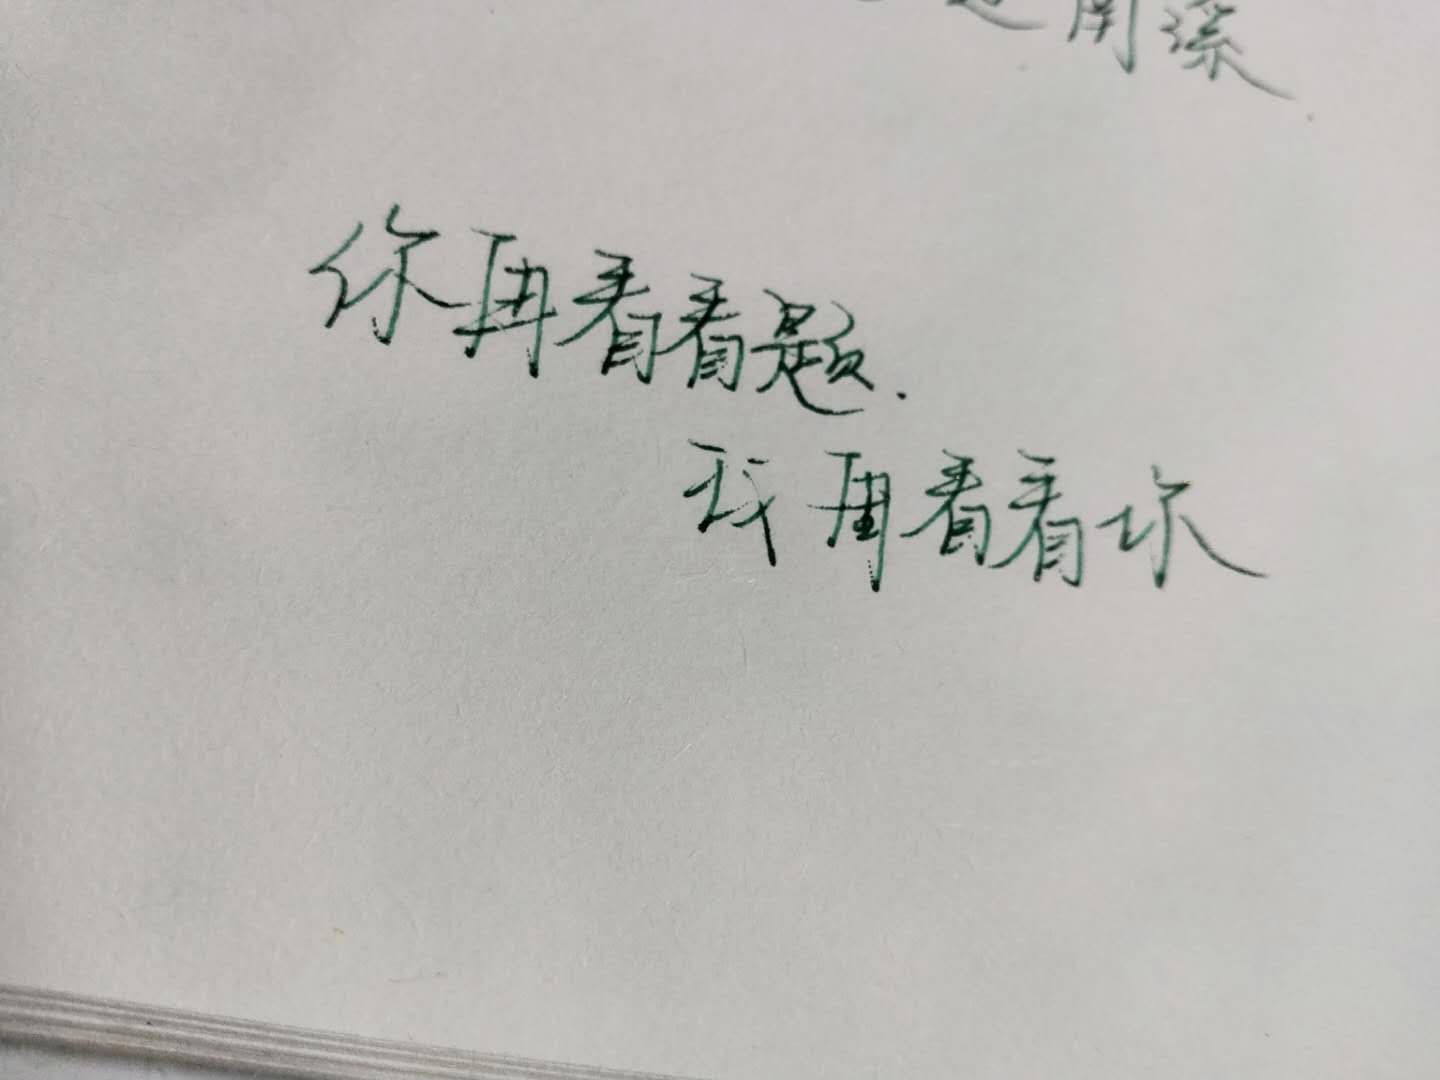 南深
你再看看题.
我再看看你